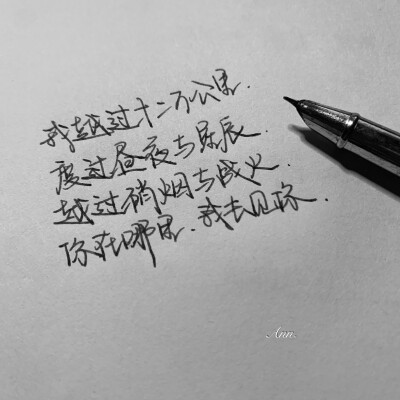 我越过十二万公里.
度过昼夜与星辰.
越过硝烟与战火.
你在哪里.我去见你.
Ann.